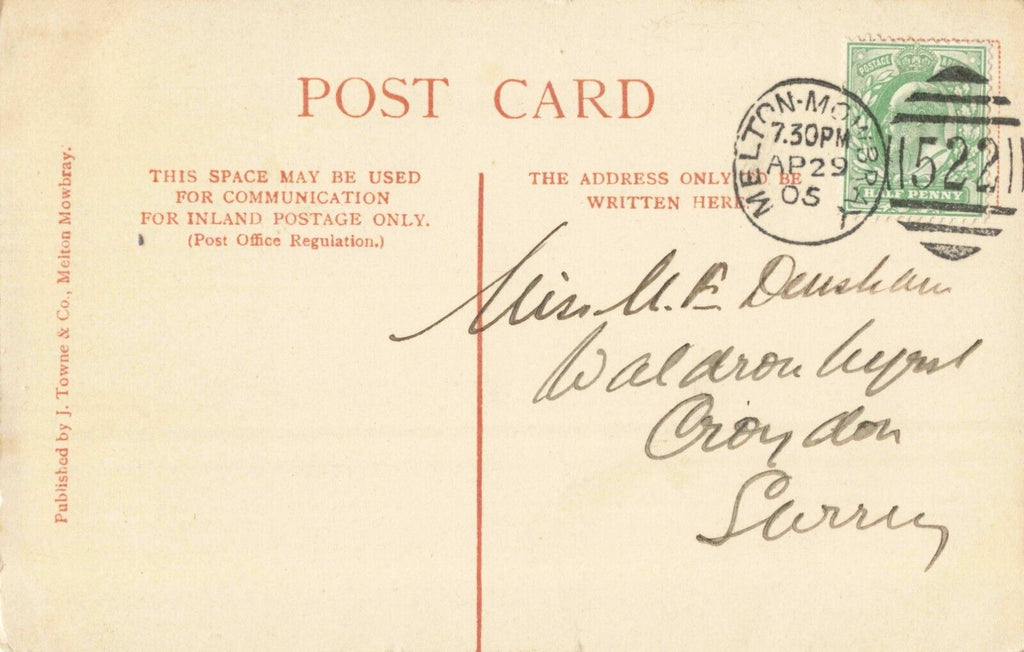 POST CARD
THIS SPACE MAY BE USED
FOR COMMUNICATION
FOR INLAND POSTAGE ONLY.
(Post Office Regulation.)
THE ADDRESS ONLY TO BE
WRITTEN HERE
MELTON-MOWBRAY
7.30PM
AP 29
05
522
POSTAGE
HALF PENNY
Miss M. E Densham
Waldronhyrst
Croydon
Surrey
Published by J. Towne & Co., Melton Mowbray.